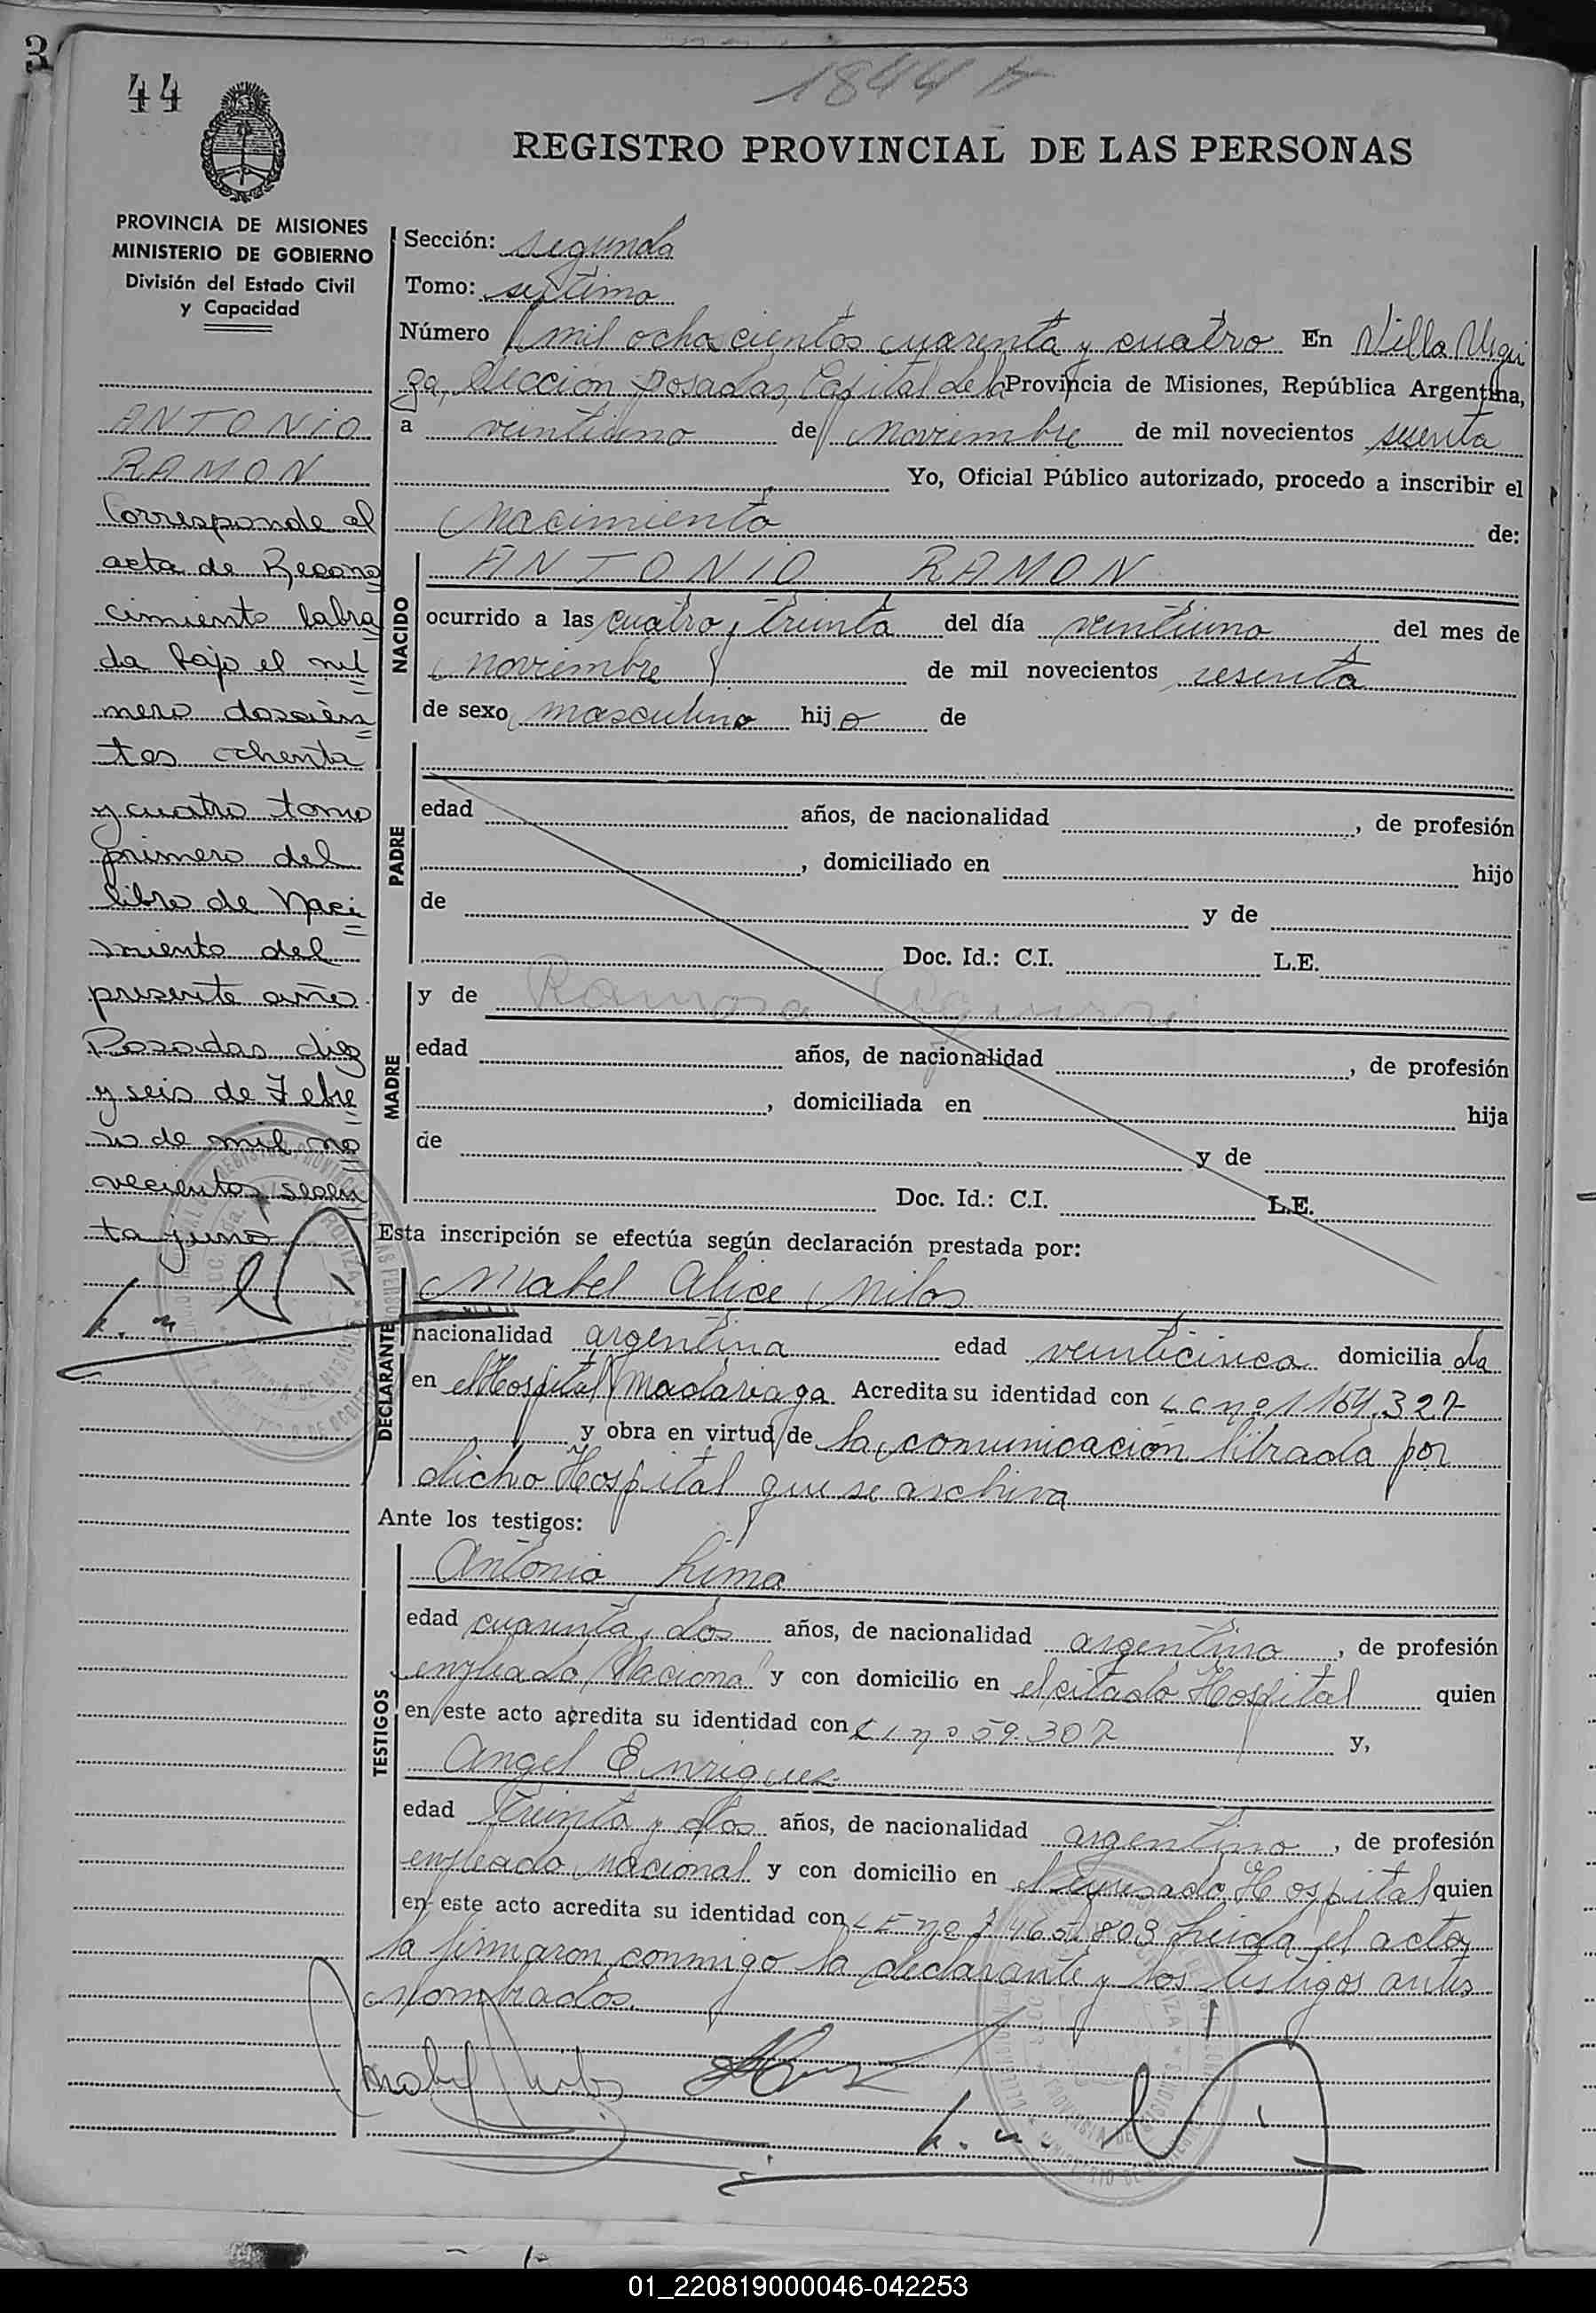 3
44
1844
REGISTRO PROVINCIAL DE LAS PERSONAS
PROVINCIA DE MISIONES
MINISTERIO DE GOBIERNO
División del Estado Civil
y Capacidad
ANTONIO
RAMON
Corresponde al
acta de Recono
cimiento labra
da bajo el nú
mero doscien
tos ochenta
y cuatro tomo
primero del
libro de Naci
miento del
presente año.
Posadas diez
y seis de Febre
ro de mil no
vecientos sesen
ta y uno
Sección: segunda
Tomo: septimo
Número mil ochocientos cuarenta y cuatro En Villa Urqui
za, Sección Posadas, Capital de la Provincia de Misiones, República Argentina,
a veintiuno de Noviembre de mil novecientos sesenta
Yo, Oficial Público autorizado, procedo a inscribir el
Nacimiento de:
NACIDO
ANTONIO RAMON
ocurrido a las cuatro y treinta del día veintiuno del mes de
Noviembre de mil novecientos sesenta
de sexo masculino hijo de
PADRE
edad años, de nacionalidad , de profesión
, domiciliado en hijo
de y de
Doc. Id.: C.I. L.E.
MADRE
y de Ramona
edad años, de nacionalidad , de profesión
, domiciliada en hija
de y de
Doc. Id.: C.I. L.E.
Esta inscripción se efectúa según declaración prestada por:
DECLARANTE
Mabel Alice Milos
nacionalidad argentina edad veinticinco domicilia da
en el Hospital Madariaga Acredita su identidad con L C nº 1164.327
y obra en virtud de la comunicación librada por
dicho Hospital que se archiva
Ante los testigos:
TESTIGOS
Antonio Lima
edad cuarenta y dos años, de nacionalidad argentino, de profesión
empleado Nacional y con domicilio en el citado Hospital quien
en este acto acredita su identidad con C I nº 59.307 y,
Angel Enriquez
edad treinta y dos años, de nacionalidad argentino, de profesión
empleado nacional y con domicilio en el expresado Hospital quien
en este acto acredita su identidad con L E nº 7.465.803 Leida el acta,
la firmaron conmigo la declarante y los testigos antes
nombrados.
01_220819000046-042253